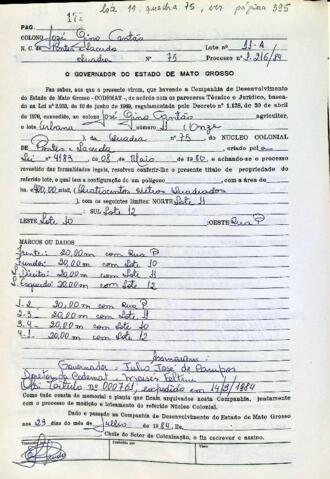 lote 11 quadra 75, ver página 395
PAG.
COLONO José Gino Cantão
Lote n.º 11-A
N. C. de Pontes e Lacerda
Quadra n.º 75
Processo n.º 1.216/84
O GOVERNADOR DO ESTADO DE MATO GROSSO
Faz saber, aos que a presente virem, que havendo a Companhia de Desenvolvimento
do Estado de Mato Grosso - CODEMAT, de acôrdo com os pareceres Técnico e Jurídico, baseado
na Lei n.º 2.033, de 10 de junho de 1969, regulamentada pelo Decreto n.º 1.128, de 30 de abril
de 1970, concedido, ao colono José Gino Cantão agricultor,
o lote Urbano número 11 (Onze
) da Quadra n.º 75, DO NÚCLEO COLONIAL
DE Pontes e Lacerda criado pela
Lei nº 4183 de 08 de Maio de 1980, e achando-se o processo
revestido das formalidades legais, resolveu conferir-lhe o presente título de propriedade do
referido lote, o qual tem a configuração de um polígono, com a área de
400,00 m² (Quatrocentos Metros Quadrados
), com os seguintes limites: NORTE Lote 11
SUL Lote 12
LESTE Lote 10 OESTE Rua P
MARCOS OU DADOS
Frente: 20,00m com Rua P
Fundos: 20,00m com Lote 10
L. Direito: 20,00m com Lote 11
L. Esquerdo: 20,00m com Lote 12
1-2 20,00m com Rua P
2-3 20,00m com Lote 11
3-4 20,00m com Lote 10
4-1 20,00m com Lote 12
Assinaram:
Governador - Julio José de Campos
Diretor da Codemat - Moisés Feltrin
Obs: Título nº 000761, expedido em 14/9/1984
Como tudo consta do memorial e planta que ficam arquivados nesta Companhia, juntamente
com o processo de medição e loteamento do referido Núcleo Colonial.
Dado e passado na Companhia de Desenvolvimento do Estado de Mato Grosso
aos 23 dias do mês de Julho de 1984. Eu,
Chefe do Setor de Colonização, o fiz escrever e assino.